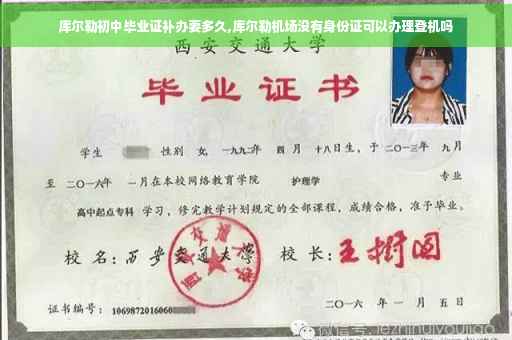 库尔勒初中毕业证补办要多久,库尔勒机场没有身份证可以办理登机吗
西安交通大学
毕业证书
学生 性别 女, 一九九二年 四月 十八日生, 于二〇一三年 九月
至 二〇一六年 一月在本校网络教育学院 护理学 专业
高中起点专科 学习, 修完教学计划规定的全部课程, 成绩合格, 准予毕业。
校 名: 西安交通大学 校 长: 王树国
西安交通大学
证书编号: 1069872016060
二〇一六 年 一 月 五 日
微信号: jezhihuiyoujiao